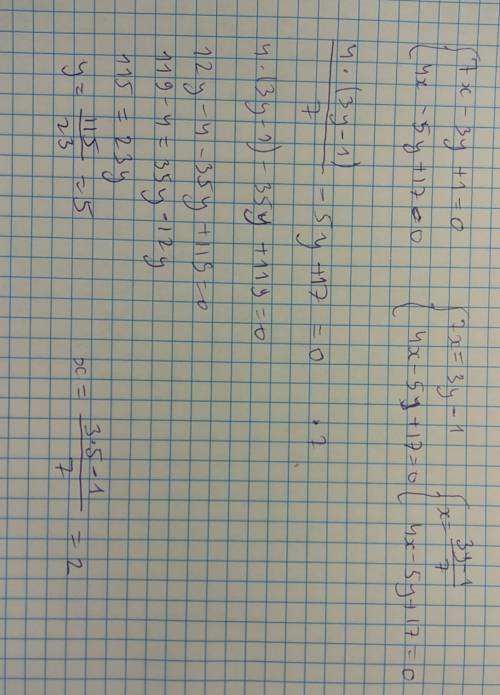 {7x - 3y + 1 = 0 {7x = 3y - 1 {x = (3y - 1)/7
{4x - 5y + 17 = 0 {4x - 5y + 17 = 0 {4x - 5y + 17 = 0
4 · (3y - 1)/7 - 5y + 17 = 0 · 7
4 · (3y - 1) - 35y + 119 = 0
12y - 4 - 35y + 119 = 0
119 - 4 = 35y - 12y
115 = 23y
y = 115/23 = 5 x = (3·5 - 1)/7 = 2